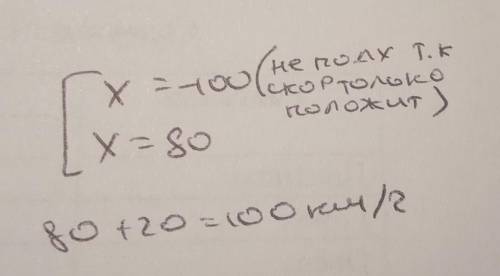 x = -100 (не подх т.к
скор толоко
положит)
x = 80
80 + 20 = 100 км/г